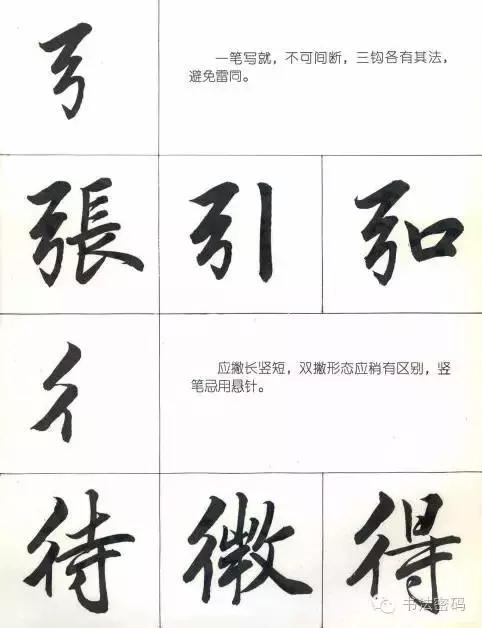 弓
一笔写就，不可间断，三钩各有其法，
避免雷同。
張 引 弘
彳
应撇长竖短，双撇形态应稍有区别，竖
笔忌用悬针。
待 微 得
书法密码